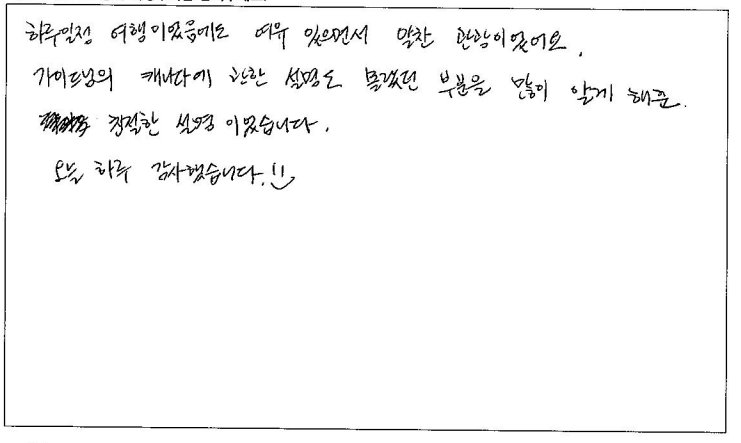 하루일정 여행이었음에도 여유 있으면서 알찬 관광이었어요.
가이드님의 캐나다에 관한 설명도 몰랐던 부분을 많이 알게 해준.
친절한 설명이었습니다.
오늘 하루 감사했습니다.!!